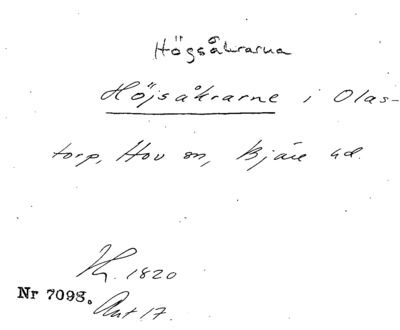 Högsåkrarna
Höjsåkrarne i Olas-
torp, Hov sn, Bjäre hd.
1820
Nr 7098.
Ant 17.